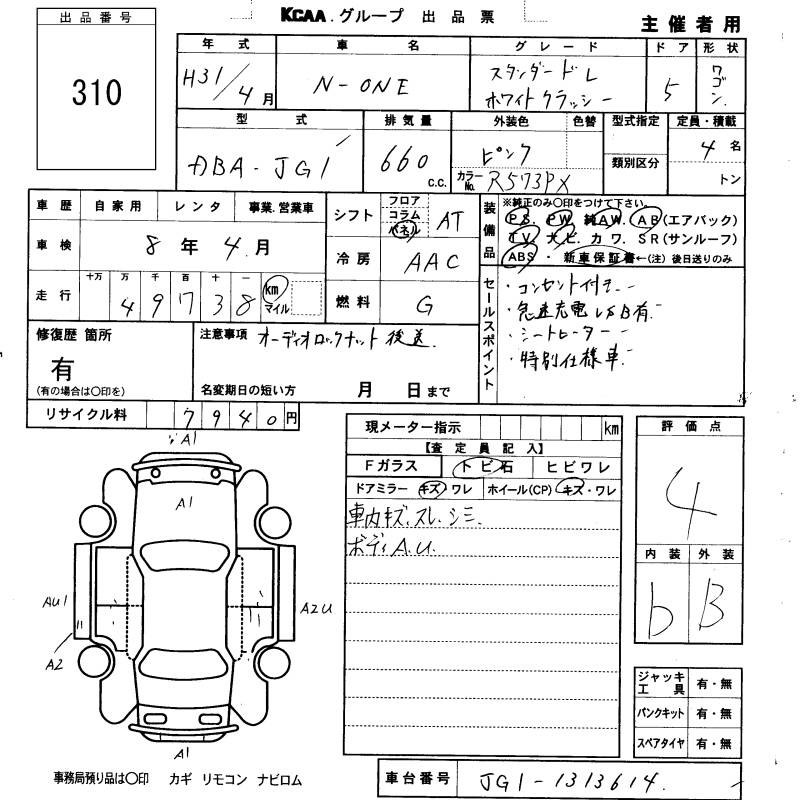 KCAA.グループ 出品票
主催者用
出品番号
310
年式 車名 グレード ドア 形状
H31/4月 N-ONE スタンダードL 5 ワゴン
ホワイトクラッシー
型式 排気量 外装色 色替 型式指定 定員・積載
DBA-JG1 660 c.c. ピンク 4名
カラーNo. R573PX 類別区分 トン
車歴 自家用 レンタ 事業.営業車
車検 8年4月
走行 十万 万 千 百 十 一 km
4 9 7 3 8 マイル
シフト フロア コラム パネル AT
冷房 AAC
燃料 G
装備品
※純正のみ○印をつけて下さい。
PS. PW. 純AW. AB(エアバック)
TV. ナビ. カワ. SR(サンルーフ)
ABS・新車保証書←(注)後日送りのみ
セールスポイント
・コンセント付き
・急速充電USB有
・シートヒーター
・特別仕様車
修復歴 箇所
有
(有の場合は○印を)
注意事項 オーディオロックナット後送.
名変期日の短い方 月 日まで
リサイクル料 7940円
現メーター指示 km
【査定員記入】
Fガラス トビ石 ヒビワレ
ドアミラー キズ・ワレ ホイール(CP) キズ・ワレ
車内キズ.スレ.シミ.
ボディA.U.
評価点
4
内装 外装
b B
A1
A1
AU1
A2
A2U
A1
ジャッキ工具 有・無
パンクキット 有・無
スペアタイヤ 有・無
事務局預り品は○印 カギ リモコン ナビロム
車台番号 JG1-1313614.